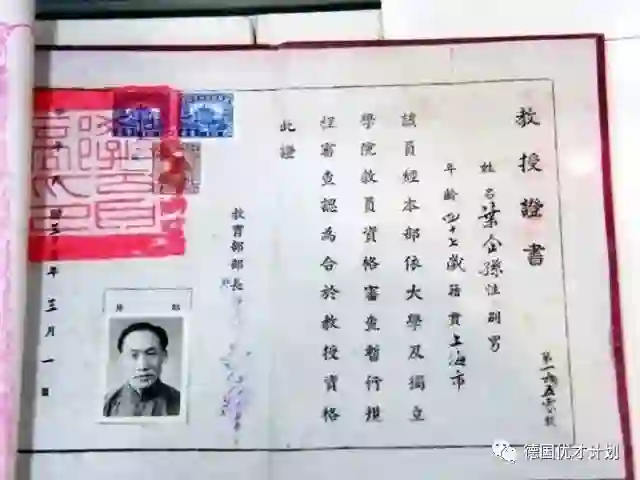 教授證書
姓名葉企孫性別男
年齡四十七歲籍貫上海市
該員經本部依大學及獨立
學院教員資格審查暫行規
程審查認為合於教授資格
此證
教育部部長
年三月一日
德国优才计划